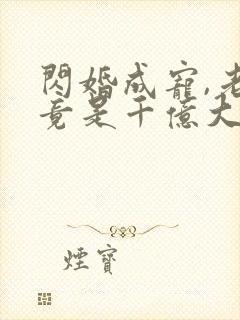 閃婚成寵,老
竟是千億大
煙寶